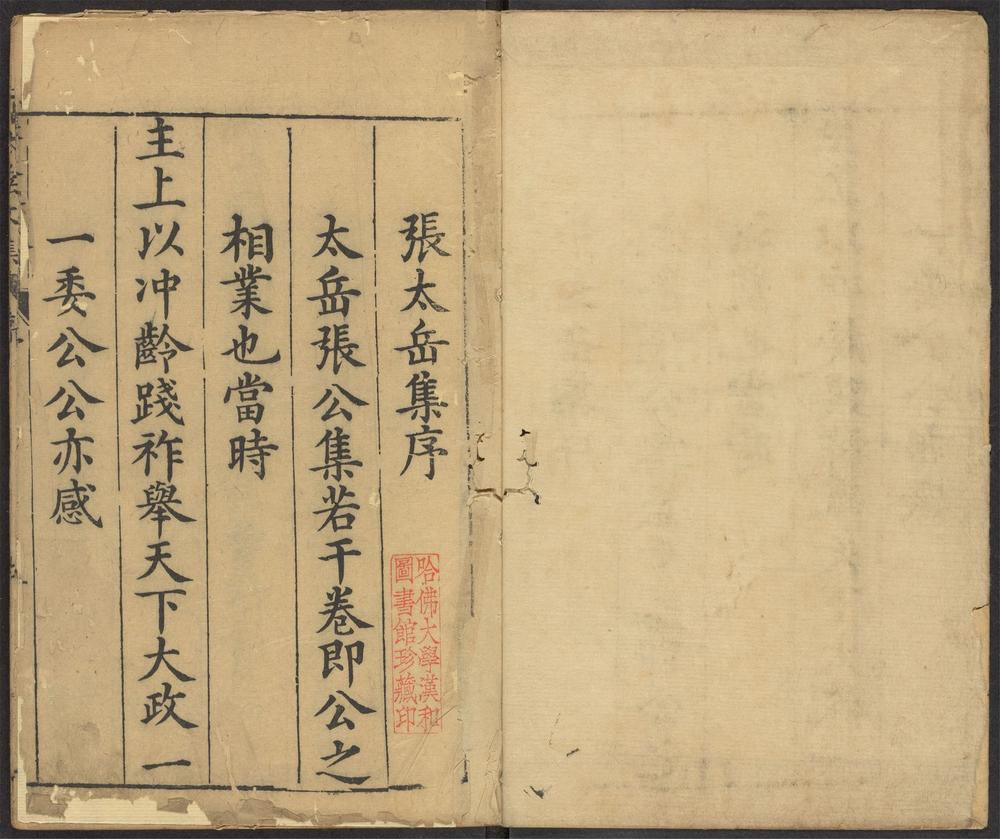 張太岳集序
太岳張公集若干卷即公之
相業也當時
主上以冲齡踐祚舉天下大政一
一委公公亦感
哈佛大學漢和
圖書館珍藏印